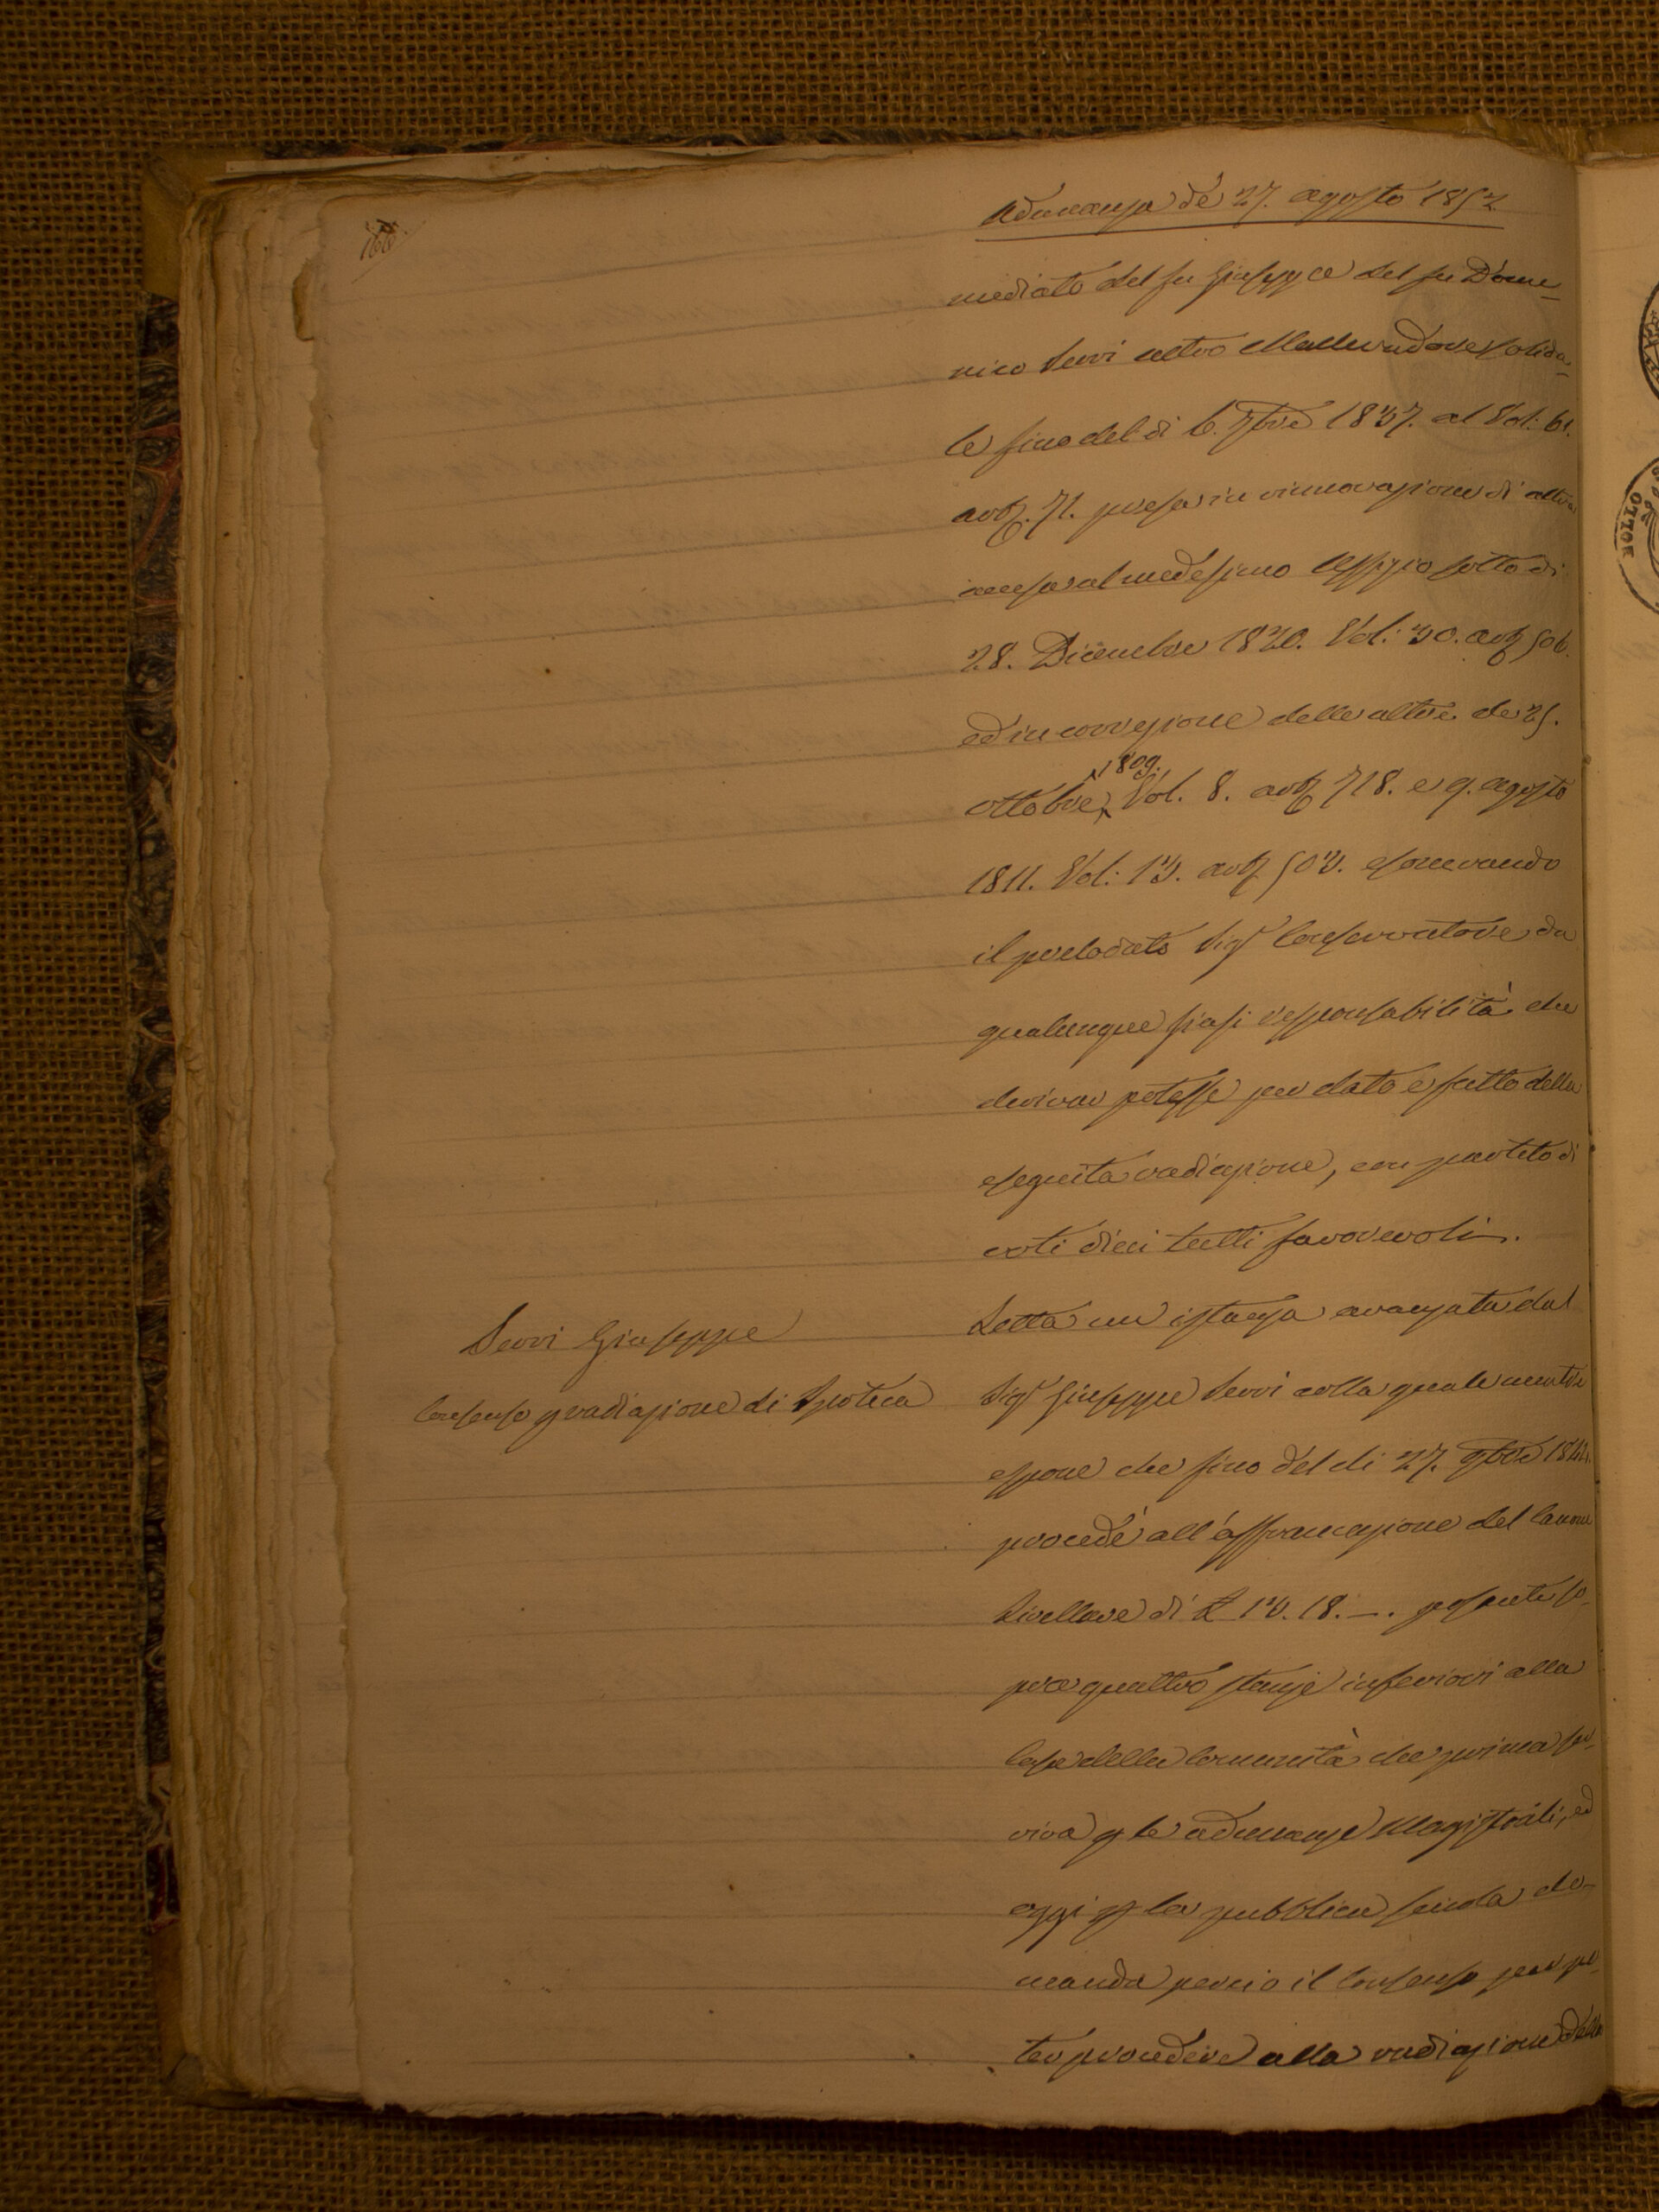 166.
Adunanza de 27. agosto 1852
mediato del fu Giuseppe del fu Dome-
nico Servi altro Mallevadore Solida-
le fino del dì 6. 7bre 1837. al Vol: 61.
art. 71. presa in rinnovazione di altra
accesa al medesimo Uffizio sotto di
28. Dicembre 1820. Vol: 30. art. 506.
ed in correzione delle altre de 25.
ottobre 1809. Vol. 8. art. 718. e 9. agosto
1811. Vol: 13. art. 503. esonerando
il prelodato Sigr Conservatore da
qualunque siasi responsabilità che
derivar potesse per dato e fatto della
eseguita radiazione, con partito di
voti dieci tutti favorevoli.
Servi Giuseppe
Consenso p radiazione di Ipoteca
Letta un istanza avanzata dal
Sigr Giuseppe Servi colla quale mentre
espone che fino del di 27. 9bre
procedè all'affrancazione del Canone
Livellare di £ 13. 18. —. posante so-
pra quattro stanze inferiori alla
Casa della Comunità che prima ser-
viva p le adunanze Magistrali, ed
oggi p la pubblica scuola do-
manda perciò il Consenso per po-
ter procedere alla radiazione della